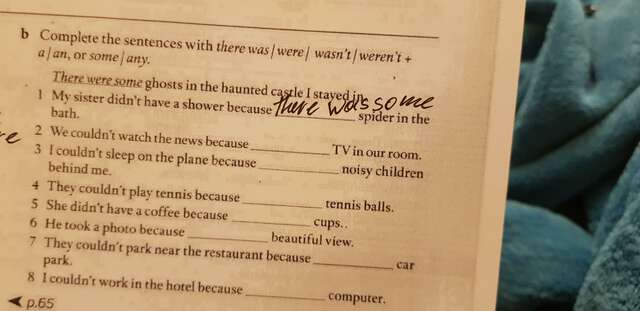 b Complete the sentences with there was / were / wasn't / weren't +
a / an, or some / any.
There were some ghosts in the haunted castle I stayed in.
1 My sister didn't have a shower because there was some spider in the
bath.
2 We couldn't watch the news because ________ TV in our room.
3 I couldn't sleep on the plane because ________ noisy children
behind me.
4 They couldn't play tennis because ________ tennis balls.
5 She didn't have a coffee because ________ cups..
6 He took a photo because ________ beautiful view.
7 They couldn't park near the restaurant because ________ car
park.
8 I couldn't work in the hotel because ________ computer.
◄ p.65